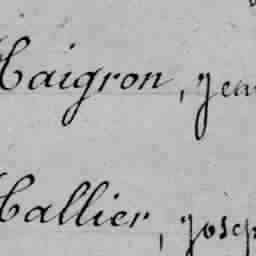 Haigron, Jean
Hallier, Josep